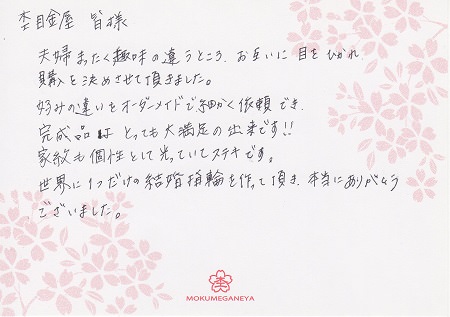 杢目金屋 皆様
夫婦まったく趣味の違うところ、お互いに目をひかれ
購入を決めさせて頂きました。
好みの違いをオーダーメイドで細かく依頼でき、
完成品はとっても大満足の出来です!!
家紋も個性として光っていてステキです。
世界に1つだけの結婚指輪を作って頂き、本当にありがとう
ございました。
MOKUMEGANEYA